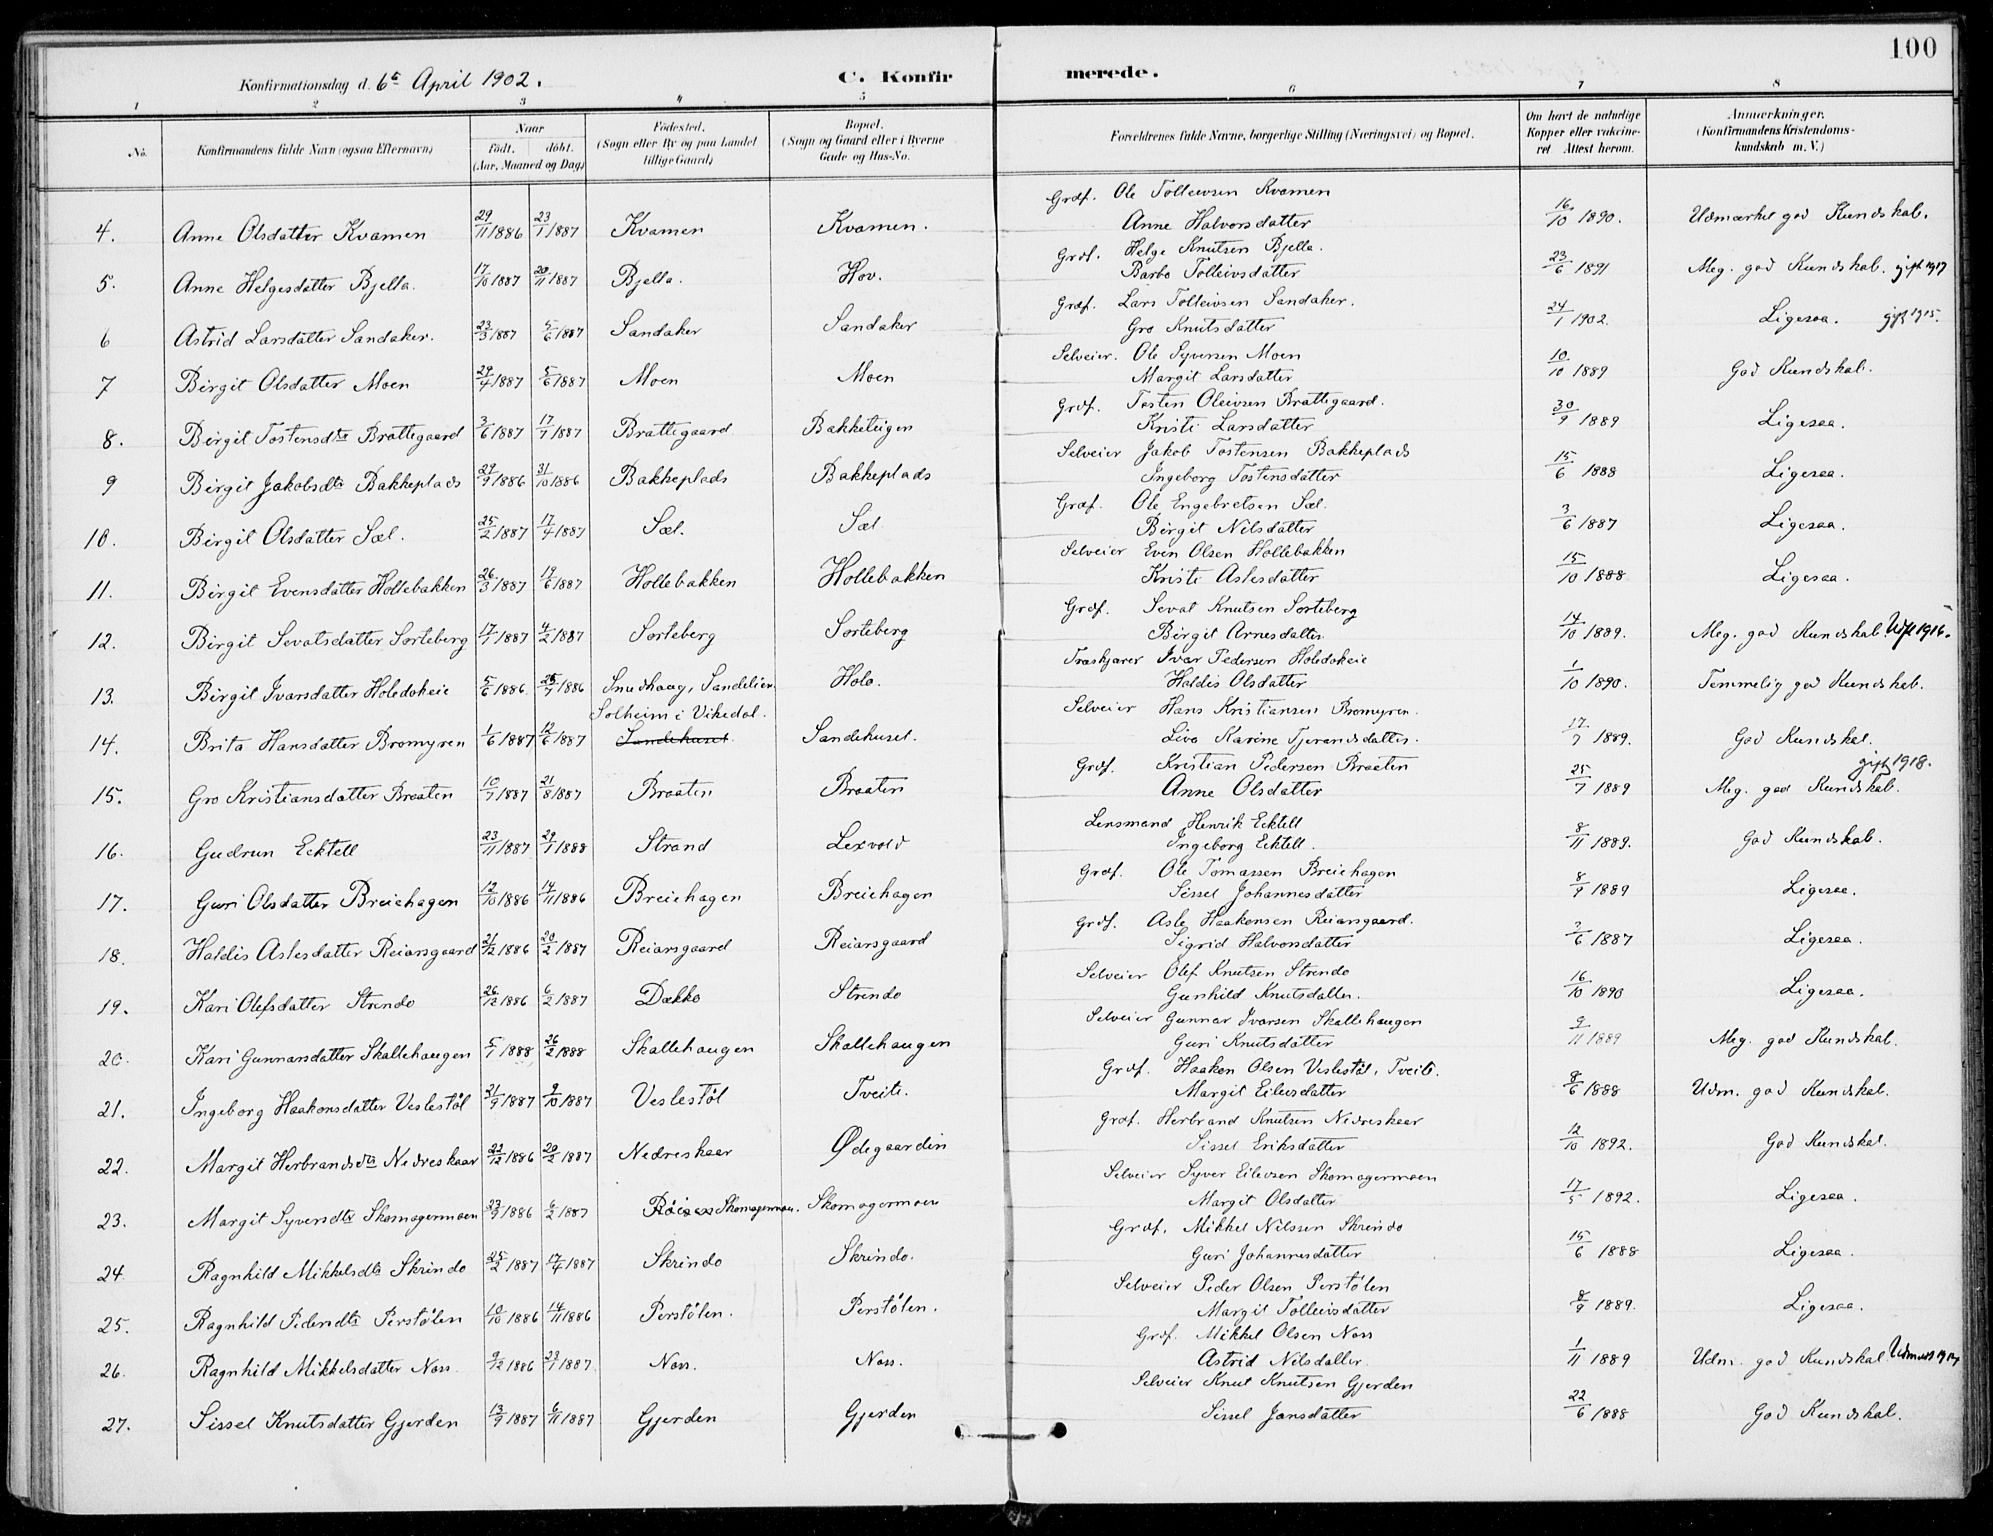 100
Konfirmationsdag d. 6te April 1902.
C. Konfirmerede.
1 2 3 4 5 6 7 8
No.
Konfirmandens fulde Navn (ogsaa Efternavn)
Naar
født. døbt.
(Aar, Maaned og Dag)
Fødested.
(Sogn eller By og paa Landet
tillige Gaard)
Bopæl.
(Sogn og Gaard eller i Byerne
Gade og Hus-No.
Forældrenes fulde Navne, borgerlige Stilling (Næringsvei) og Bopæl.
Om havt de naturlige
Kopper eller vakcine-
ret Attest herom.
Anmærkninger.
(Konfirmandens Kristendoms-
kundskab m. V.)
4. Anne Olsdatter Kvamen 29/11 1886 23/1 1887 Kvamen Kvamen. Grdf. Ole Tolleivsen Kvamen 16/10 1890. Udmærket god Kundskab.
Anne Halvorsdatter
5. Anne Helgesdatter Bjella. 17/10 1887 20/11 1887 Bjella. Hov. Grdf. Helge Knutsen Bjella. 23/6 1891 Meg. god Kundskab. gift 1917
Barbo Tolleivsdatter
6 Astrid Larsdatter Sandaker. 23/3 1887 5/6 1887 Sandaker Sandaker Grdf. Lars Tolleivsen Sandaker. 24/1 1902. Ligesaa. gift 1915.
Gro Knutsdatter
7 Birgit Olsdatter Moen 29/4 1887 5/6 1887 Moen Moen Selveier. Ole Syversen Moen 10/10 1889 God Kundskab.
Margit Larsdatter
8. Birgit Tostensdtr Brattegaard 3/6 1887 17/7 1887 Brattegaard Bakketeigen Grdf. Tosten Oleivsen Brattegaard. 30/9 1889 Ligesaa.
Kristi Larsdatter
9 Birgit Jakobsdtr Bakkeplads 29/9 1886 31/10 1886 Bakkeplads Bakkeplads Selveier Jakob Tostensen Bakkeplads 15/6 1888 Ligesaa.
Ingeborg Tostensdatter
10. Birgit Olsdatter Sæl. 25/2 1887 17/4 1887 Sæl. Sæl Grdf. Ole Engebretsen Sæl. 3/6 1887 Ligesaa.
Birgit Nilsdatter
11. Birgit Evensdatter Hollebakken 26/3 1887 19/6 1887 Hollebakken Hollebakken Selveier Even Olsen Hollebakken 15/10 1888 Ligesaa.
Kristi Aslesdatter
12. Birgit Sevatsdatter Sorteberg 17/1 1887 4/2 1887 Sorteberg Sorteberg Grdf. Sevat Knutsen Sorteberg 14/10 1889. Meg. god Kundskab. 1916.
Birgit Arnesdatter
13. Birgit Ivarsdatter Holedokeie 5/6 1886 25/7 1886 Smedhaug, Sandelien Holo. Træskjærer Ivar Pedersen Holedokeie 1/10 1890. Temmelig god Kundskab.
Haldis Olsdatter
14. Brita Hansdatter Bromyren 1/6 1887 12/6 1887 Solheim i Vikedal. Sandehuset. Sandehuset. Selveier Hans Kristiansen Bromyren. 17/7 1889. God Kundskab.
Liva Karine Tjerandsdatter.
15. Gro Kristiansdatter Braaten 10/7 1887 21/8 1887 Braaten Braaten Grdf. Kristian Pedersen Braaten 25/7 1889 Meg. god Kundskab. gift 1918.
Anne Olsdatter
16. Gudrun Ecktell 23/11 1887 29/1 1888 Strand Lexvold Lensmand Henrik Ecktell 8/11 1889. God Kundskab.
Ingeborg Ecktell.
17. Guri Olsdatter Breiehagen 12/10 1886 14/11 1886 Breiehagen Breiehagen Grdf. Ole Tomassen Breiehagen 8/9 1889 Ligesaa.
Sissel Johannesdatter
18. Haldis Aslesdatter Reiarsgaard 21/12 1886 20/2 1887 Reiarsgaard Reiarsgaard Grdf. Asle Haakonsen Reiarsgaard. 3/6 1887 Ligesaa.
Sigrid Halvorsdatter
19. Kari Olefsdatter Strendo 26/12 1886 6/2 1887 Dækko Strendo Selveier Olef Knutsen Strendo 16/10 1890 Ligesaa.
Gunhild Knutsdatter.
20 Kari Gunnarsdatter Skallehaugen 5/1 1888 26/2 1888 Skallehaugen Skallehaugen Selveier Gunnar Ivarsen Skallehaugen 9/11 1889 Meg. god Kundskab.
Guri Knutsdatter
21. Ingeborg Haakonsdatter Veslestøl 21/9 1887 9/10 1887 Veslestøl Tveiti. Grdf. Haakon Olsen Veslestøl, Tveiti. 8/6 1888 Udm. god Kundskab.
Margit Eilevsdatter
22. Margit Herbrandsdtr Nedreskaar 22/12 1886 20/2 1887 Nedreskaar Ødegaarden Grdf. Herbrand Knutsen Nedreskaar 12/10 1892. God Kundskab.
Sissel Eriksdatter
23. Margit Syversdtr Skomagermoen 23/9 1886 6/2 1887 Skomagermoen. Skomagermoen Selveier Syver Eilevsen Skomagermoen 17/5 1892. Ligesaa.
Margit Olsdatter
24. Ragnhild Mikkelsdtr Skrindo 25/2 1887 17/4 1887 Skrindo Skrindo. Grdf. Mikkel Nilssen Skrindo 15/6 1888 Ligesaa.
Guri Johannesdatter
25. Ragnhild Pedersdtr Perstølen 10/10 1886 14/11 1886 Perstølen. Perstølen. Selveier Peder Olsen Perstølen 8/9 1889. Ligesaa.
Margit Tolleivsdatter
26. Ragnhild Mikkelsdatter Nøss 9/12 1886 23/1 1887. Nøss. Nøss. Grdf. Mikkel Olsen Nøss 1/11 1889 Udm. god Kundskab
Astrid Nilsdatter.
27. Sissel Knutsdatter Gjerden 13/9 1887 6/11 1887 Gjerden Gjerden Selveier Knut Knutsen Gjerden 22/6 1888 God Kundskab.
Sissel Jonsdatter